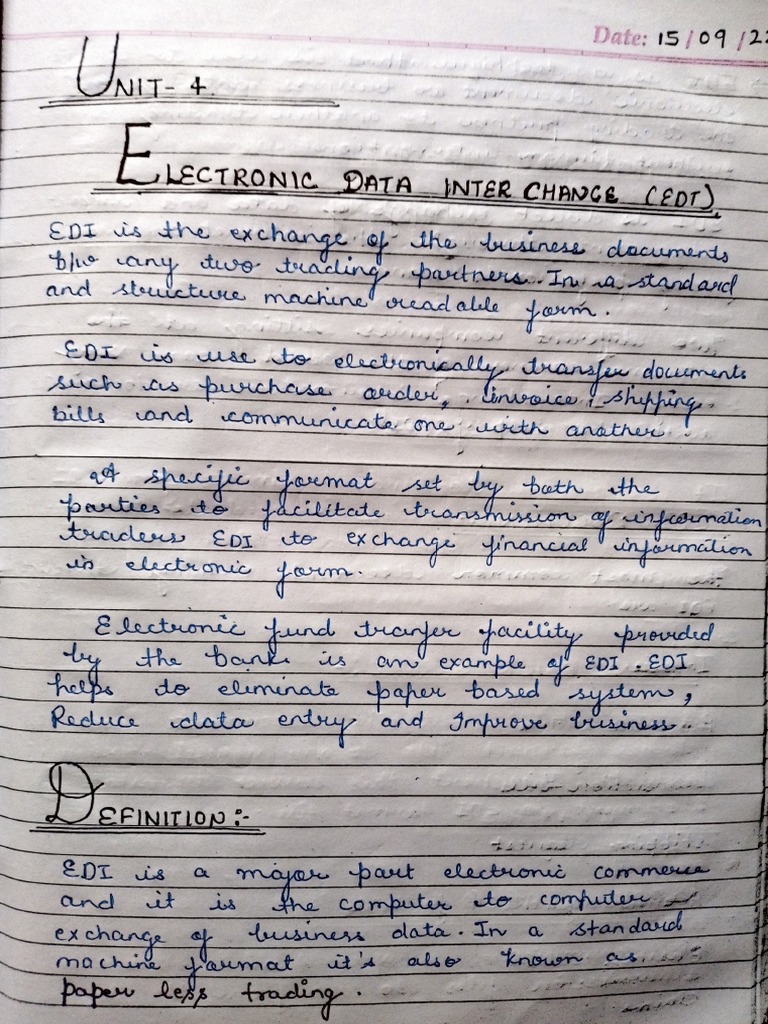 Date: 15/09/22
UNIT- 4
ELECTRONIC DATA INTER CHANGE (EDI)
EDI is the exchange of the business documents
b/w any two trading partners. In a standard
and structure machine readable form.
EDI is use to electronically transfer documents
such as purchase order, invoice, shipping
bills and communicate one with another.
A specific format set by both the
parties to facilitate transmission of information
traders EDI to exchange financial information
in electronic form.
Electronic fund tranfer facility provided
by the bank is an example of EDI. EDI
helps to eliminate paper based system,
Reduce data entry and Improve business.
DEFINITION:-
EDI is a major part electronic commerce
and it is the computer to computer
exchange of business data. In a standard
machine format it's also known as
paper less trading.